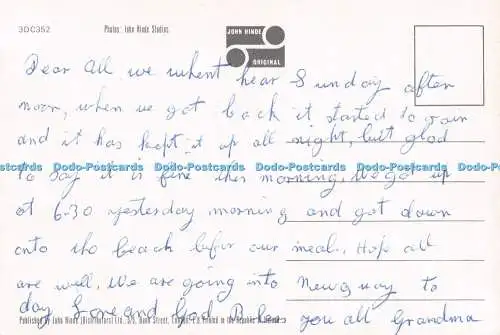 3DC352
Photos: John Hinde Studios.
JOHN HINDE
ORIGINAL
Dear All we whent hear Sunday after
noon, when we got back it started to rain
and it has kept it up all night, but glad
to say it is fine this morning. We got up
at 6-30 yesterday morning and got down
onto the beach before our meal. Hope all
are well. We are going into Newquay to
day Love and God Bless you all Grandma
Dodo-Postcards Dodo-Postcards Dodo-Postcards Dodo-Postcards
Published by John Hinde (Distributors) Ltd.
Printed in the Republic